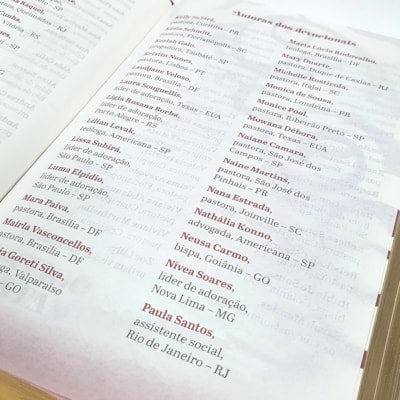 Queimados – RJ
Cunha,
– ES
Autoras dos devocionais
Kelly Subirá,
pastora, Curitiba – PR
Kenia Schmitt,
pastora, Florianópolis – SC
Keziah Galo,
pregadora, Taubaté – SP
Kristin Nunes,
pastora, Lisboa – PT
Laudjane Veloso,
pastora, Brasília – DF
Laura Souguellis,
líder de adoração, Texas – EUA
Lígia Rosana Borba,
Porto Alegre – RS
Lilian Levak,
teóloga, Americana – SP
Lissa Subirá,
líder de adoração,
São Paulo – SP
Luma Elpidio,
líder de adoração,
São Paulo – SP
Mara Paiva,
pastora, Brasília – DF
Mairla Vasconcellos,
pastora, Brasília – DF
Goreti Silva,
Valparaíso
– GO
Maria Lúcia Rodovalho,
teóloga, Brasília – DF
Mary Duarte,
pastora, Duque de Caxias – RJ
Michelle Rostirola,
pastora, Itajaí – SC
Monica de Sousa,
pastora, Londrina – PR
Monice Pool,
pastora, Ribeirão Preto – SP
Mowana Débora,
pastora, Texas – EUA
Naiane Camara,
pastora, São José dos
Campos – SP
Naine Martins,
pastora, São José dos
Pinhais – PR
Nana Estrada,
pastora, Joinville – SC
Nathália Konno,
advogada, Americana – SP
Neusa Carmo,
bispa, Goiânia – GO
Nívea Soares,
líder de adoração,
Nova Lima – MG
Paula Santos,
assistente social,
Rio de Janeiro – RJ